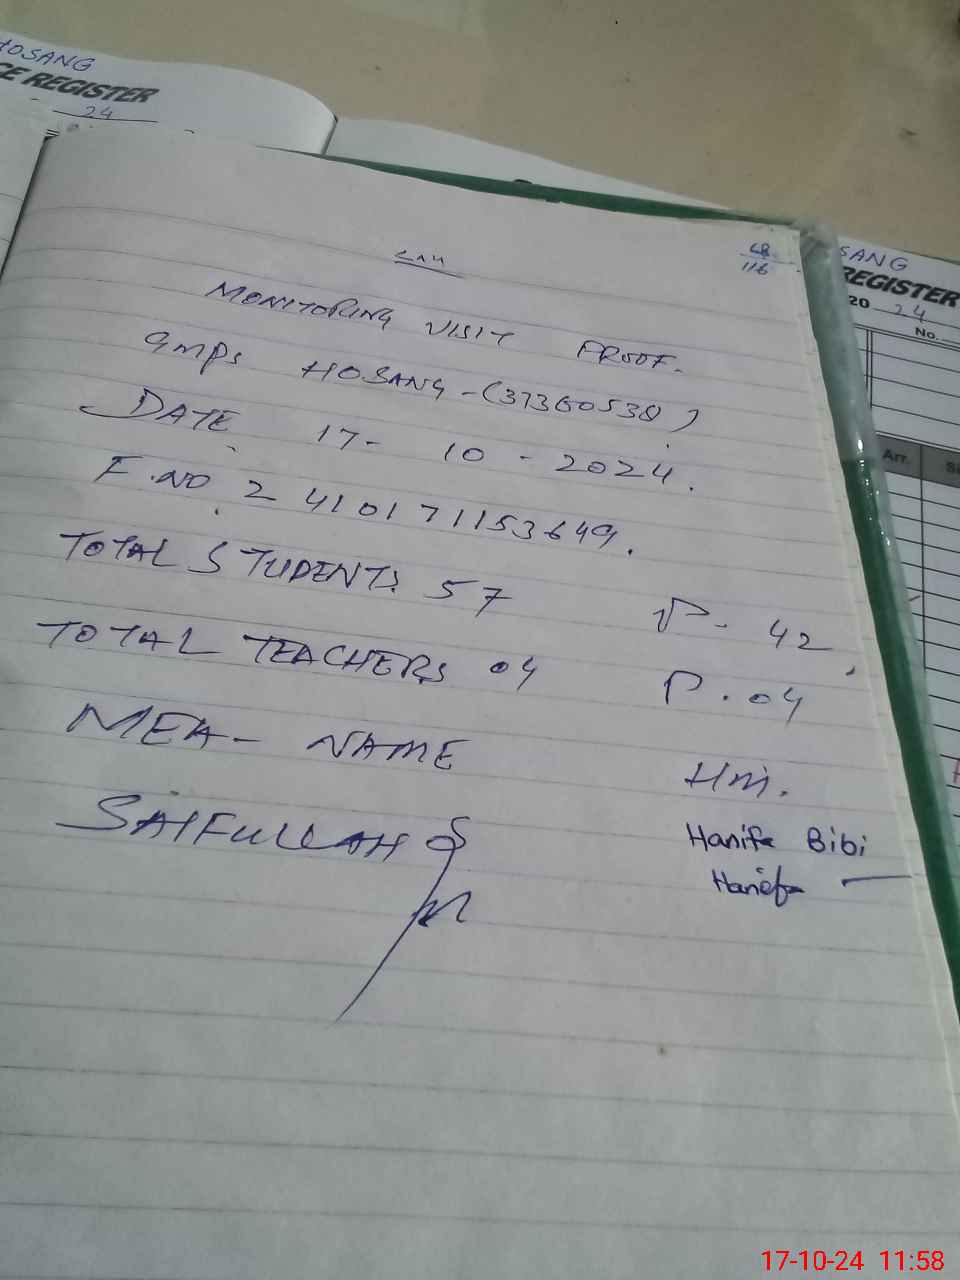 HOSANG
CE REGISTER
24
68
116
MONITORING VISIT PROOF.
GMPS HOSANG - (37360538)
DATE 17 - 10 - 2024.
F.NO 2410171153649.
TOTAL STUDENTS 57 P - 42
TOTAL TEACHERS 04 P . 04
MEA - NAME Hm.
SAIFULLAH Hanifa Bibi
Hanifa
SANG
REGISTER
20 24
No.
Arr.
17-10-24 11:58